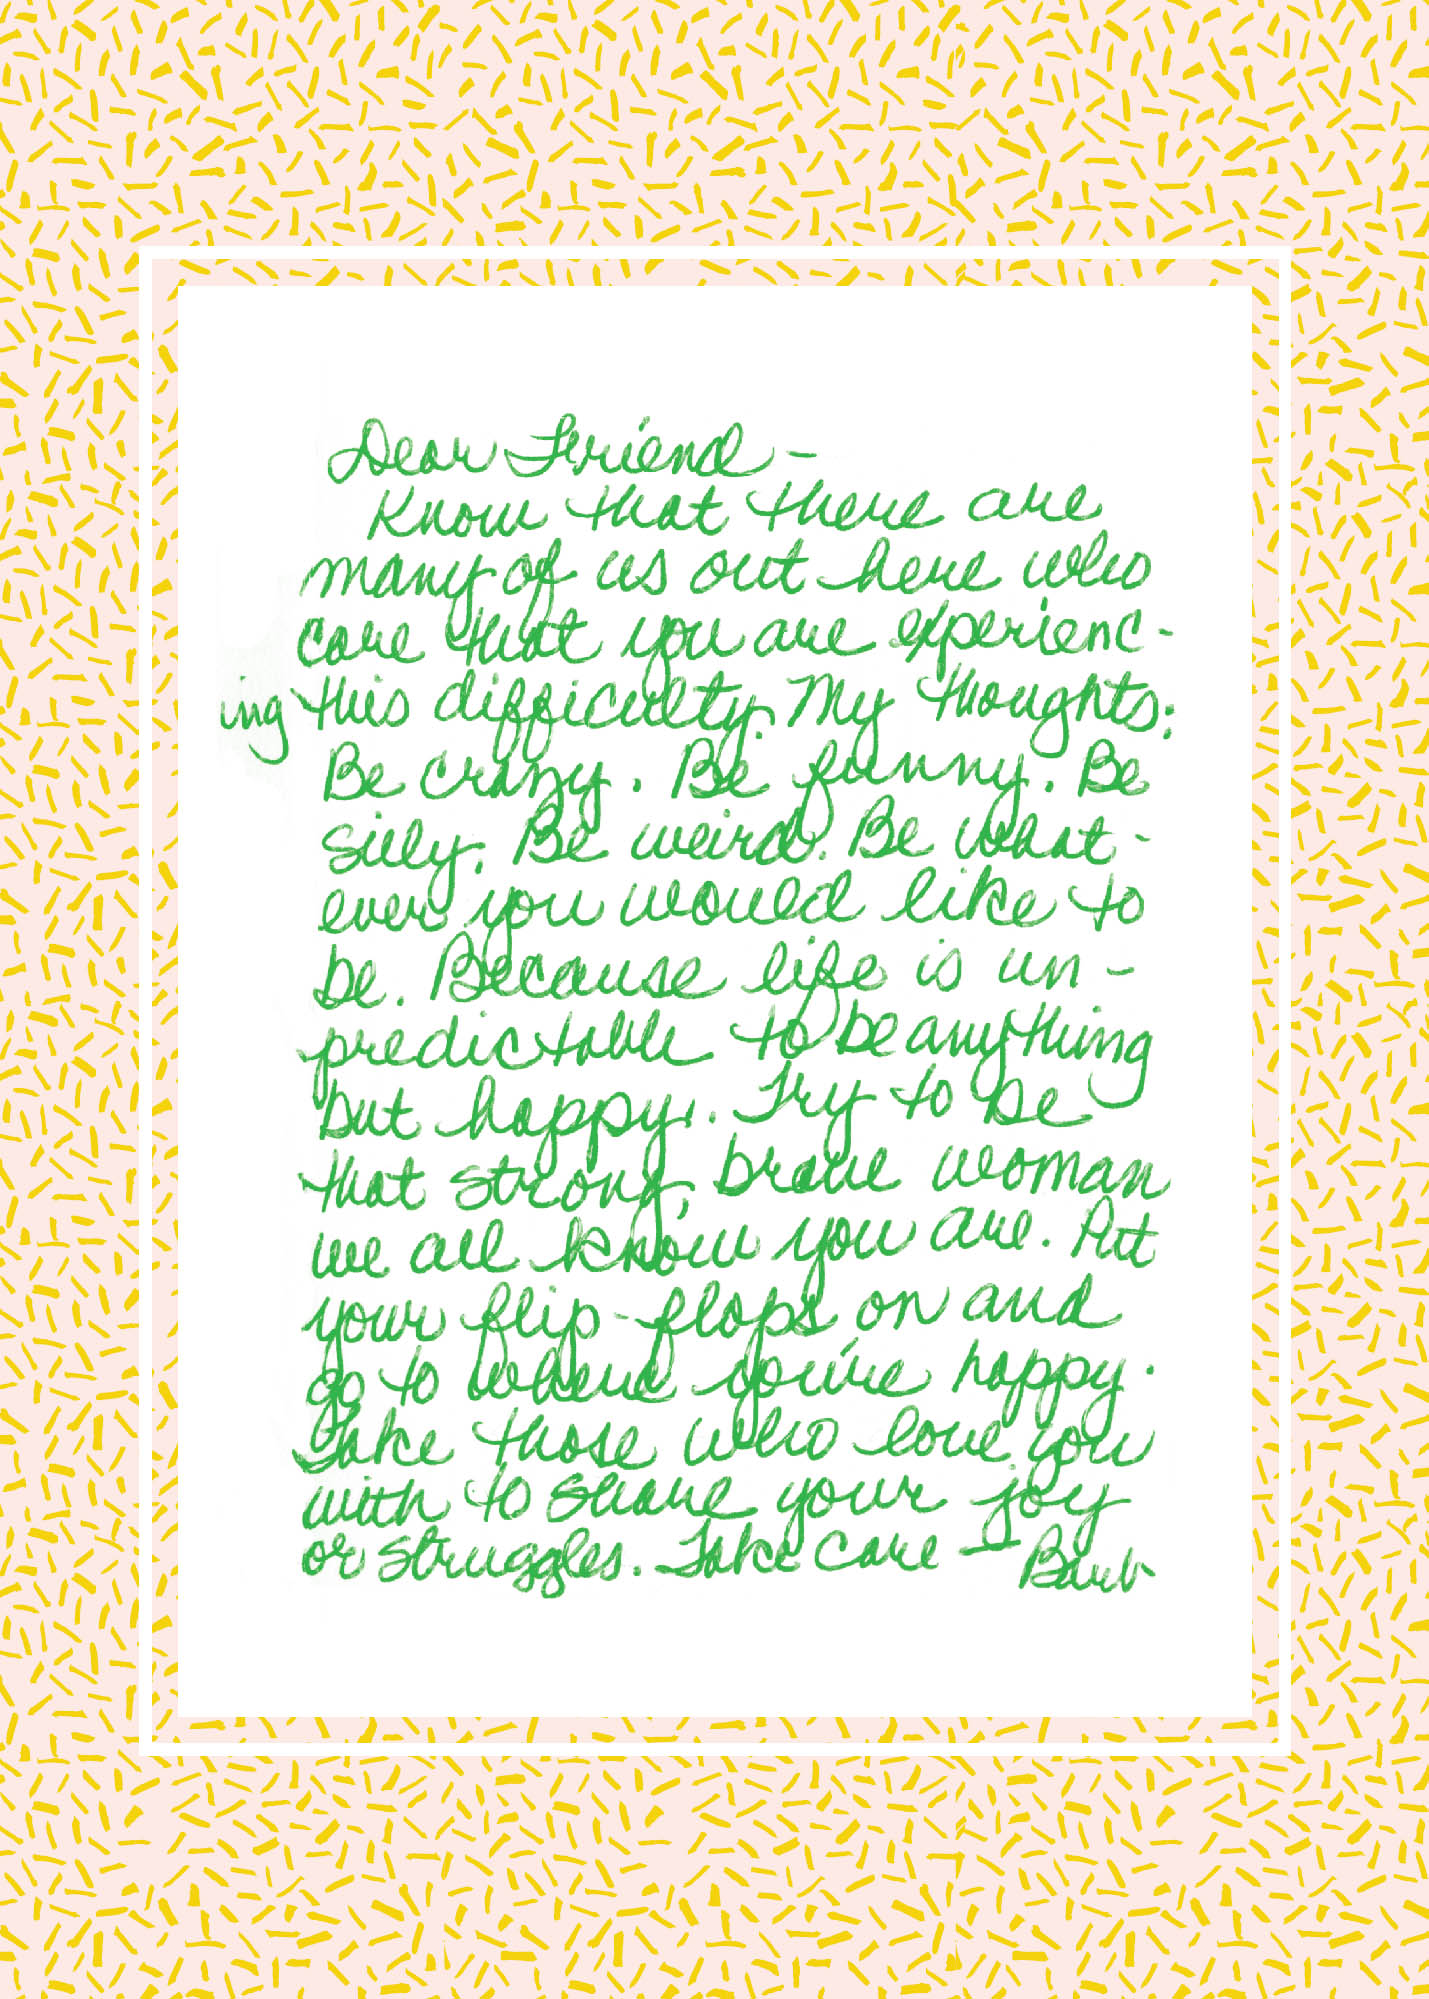 Dear Friend -
Know that there are
many of us out here who
care that you are experienc-
ing this difficulty. My thoughts:
Be crazy. Be funny. Be
silly. Be weird. Be what-
ever you would like to
be. Because life is un-
predictable to be anything
but happy. Try to be
that strong, brave woman
we all know you are. Put
your flip-flops on and
go to where you're happy.
Take those who love you
with to share your joy
or struggles. Take care — Barb